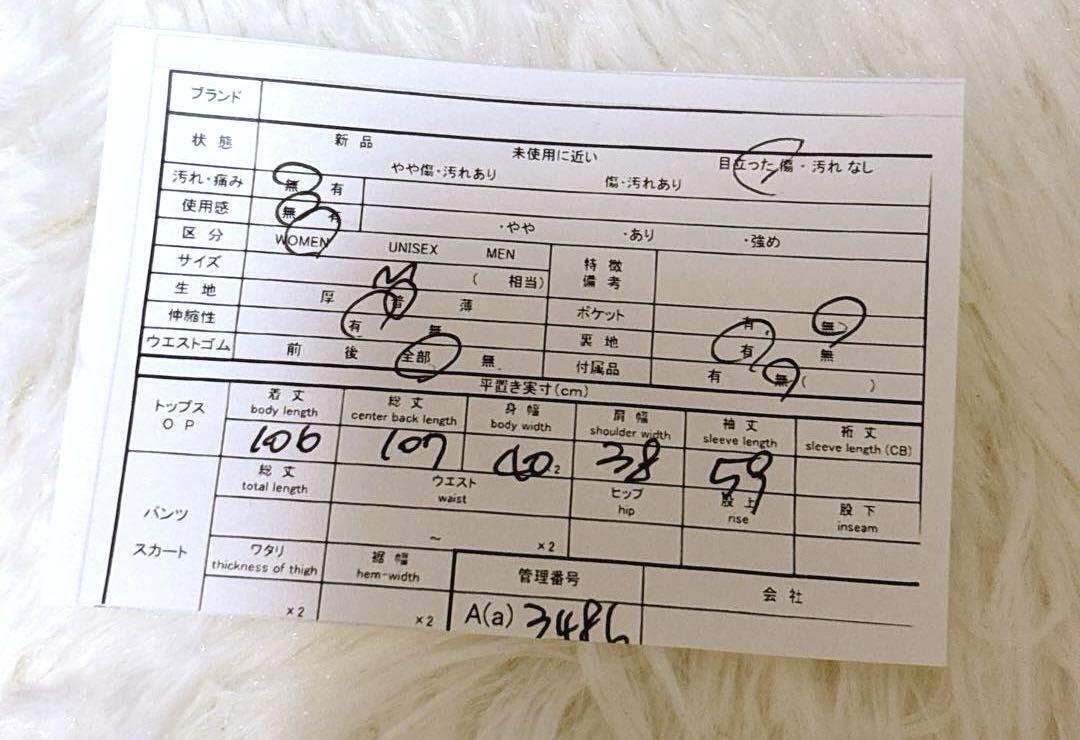 ブランド
状態 新品 未使用に近い 目立った傷・汚れなし
やや傷・汚れあり 傷・汚れあり
汚れ・痛み 無 有
使用感 無 有 ・やや ・あり ・強め
区分 WOMEN UNISEX MEN 特徴備考
サイズ M ( 相当)
生地 厚 普 薄 ポケット 有 無
伸縮性 有 無 裏地 有 無
ウエストゴム 前 後 全部 無 付属品 有 無( )
平置き実寸(cm)
トップス OP 着丈 総丈 身幅 肩幅 袖丈 裄丈
body length center back length body width shoulder width sleeve length sleeve length (CB)
106 107 40 2 38 59
パンツ スカート 総丈 ウエスト ヒップ 股上 股下
total length waist hip rise inseam
～ ×2
ワタリ 裾幅 管理番号 会社
thickness of thigh hem-width
×2 ×2 A(a) 3486